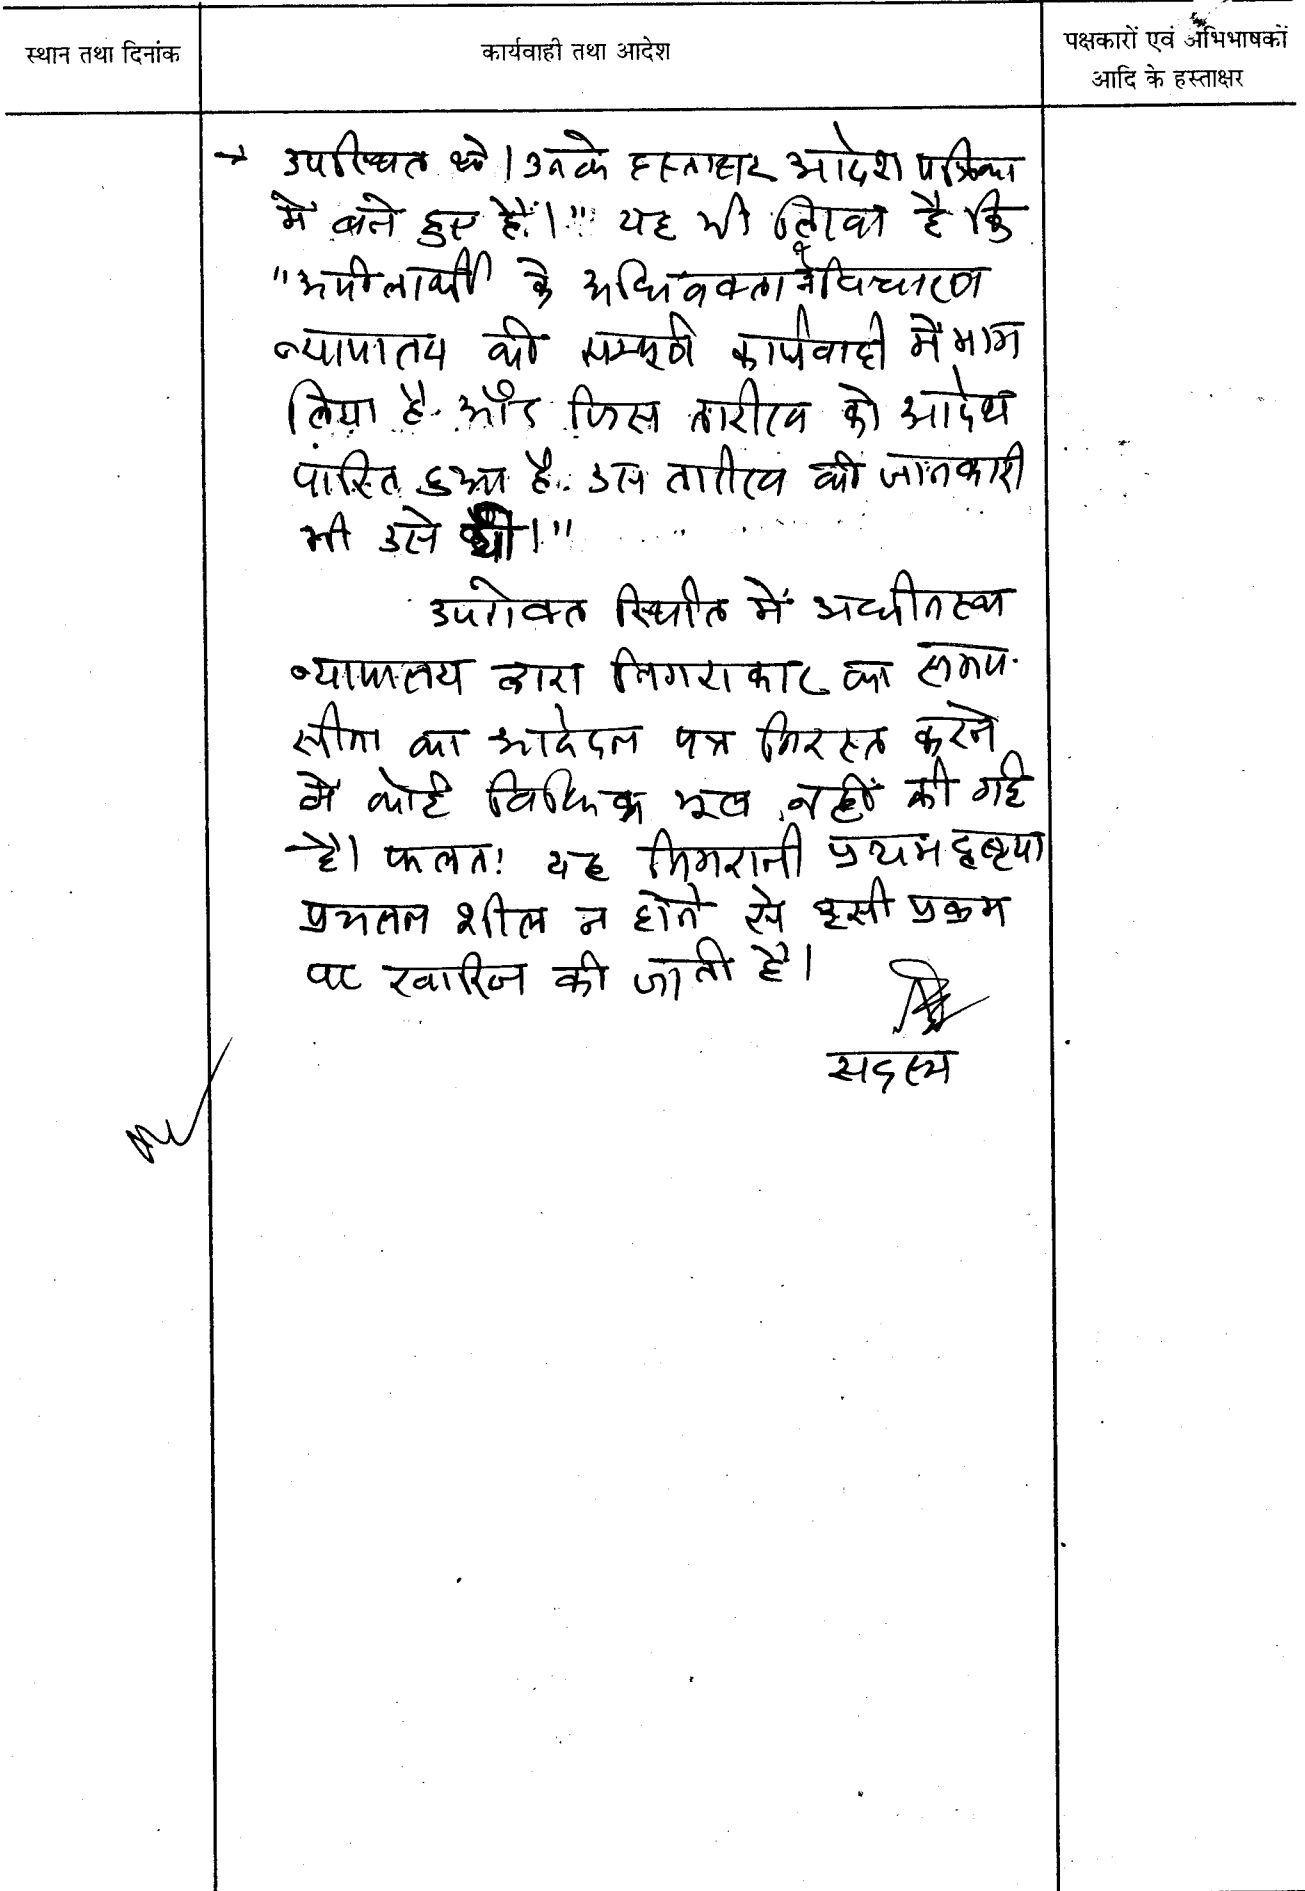 स्थान तथा दिनांक
कार्यवाही तथा आदेश
पक्षकारों एवं अभिभाषकों
आदि के हस्ताक्षर
→ उपस्थित थे। उनके हस्ताक्षर आदेश पत्रिका
में बने हुए हैं।" यह भी लिखा है कि
"अपीलार्थी के अधिवक्ता ने विचारण
न्यायालय की सम्पूर्ण कार्यवाही में भाग
लिया है और जिस तारीख को आदेश
पारित हुआ है उस तारीख की जानकारी
भी उसे थी।"
उपरोक्त स्थिति में अधीनस्थ
न्यायालय द्वारा निगराकार का समय
सीमा का आवेदन पत्र निरस्त करने
में कोई विधिक भूल नहीं की गई
है। फलतः यह निगरानी प्रथम दृष्टया
प्रचलन शील न होने से इसी प्रक्रम
पर खारिज की जाती है।
सदस्य